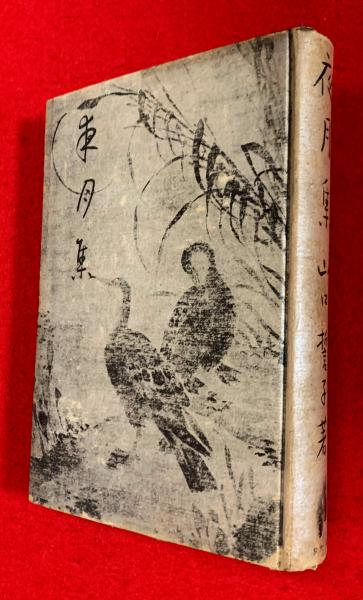 夜月集
夜月集 山口誓子著